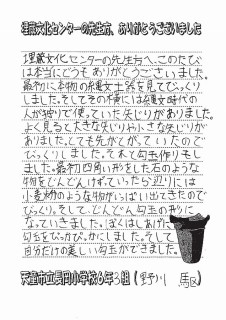 埋蔵文化センターの先生方、ありがとうございました
埋蔵文化センターの先生方へ、このたび
は本当にどうもありがとうございました。
最初に本物の縄文土器を見てびっくり
しました。そしてその横には縄文時代の
人が狩りで使っていた矢じりがありました。
よく見ると大きな矢じりや小さな矢じりが
ありました。とても先がとがっていたので
びっくりしました。それで勾玉作りもし
ました。最初四角い形をした石のような
物をどんどんけずっていったら辺りには
小麦粉のような物がいっぱい出てきたので
びっくり。そして、どんどん勾玉の形に
なっていきました。ぼくはしあげに
勾玉をぴっかぴかにしました。そして
自分だけの美しい勾玉ができました。
天童市立長岡小学校6年3組